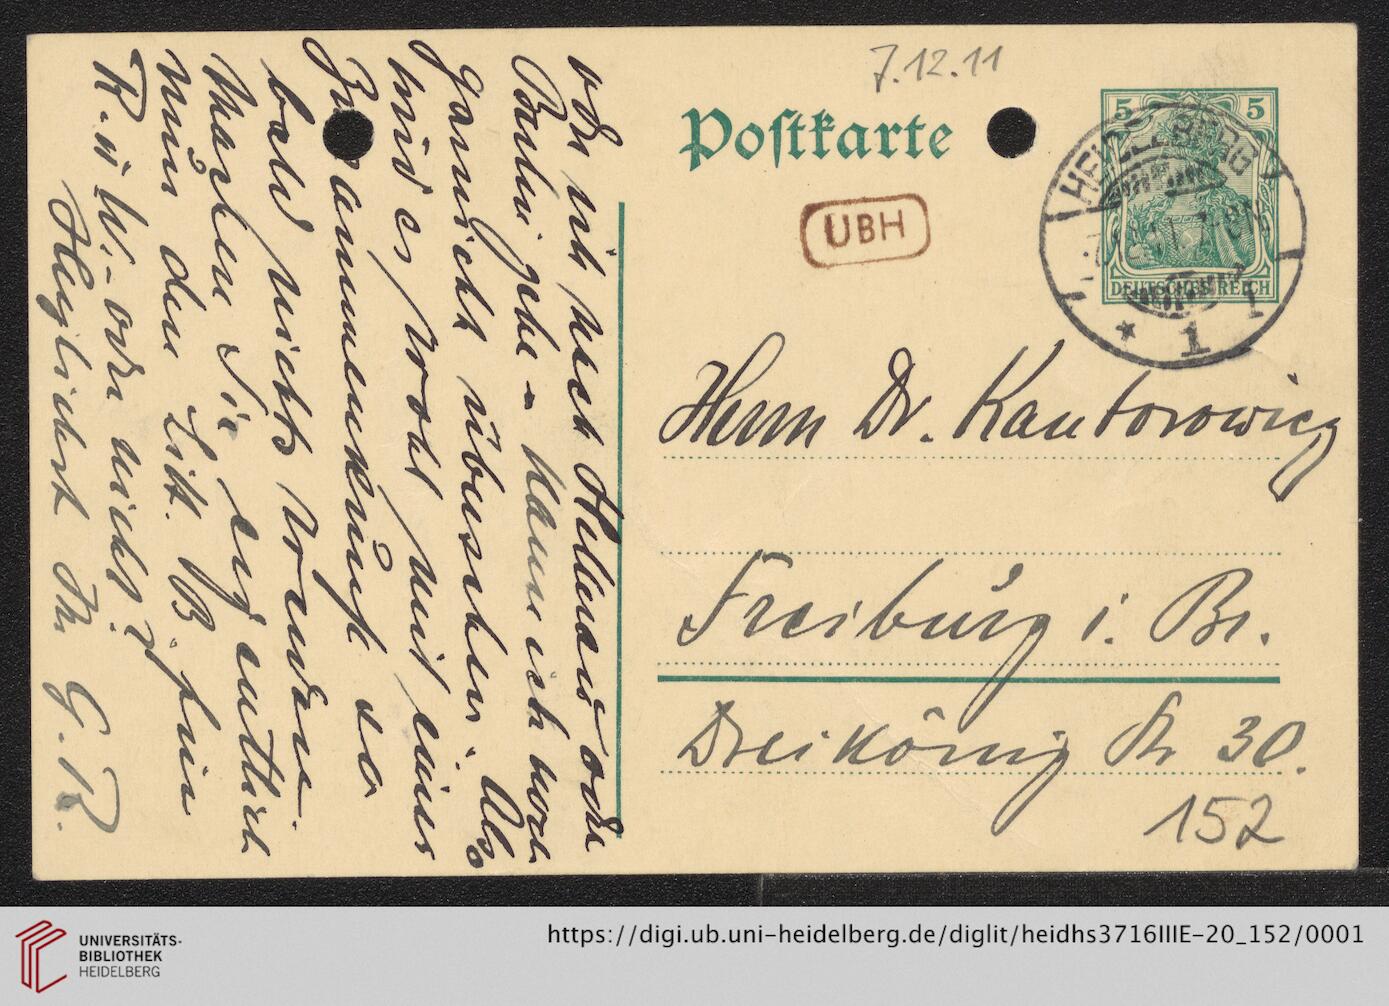 7.12.11
Postkarte
UBH
5 5
DEUTSCHES REICH
HEIDELBERG
* 1
Herrn Dr. Kantorowicz
Freiburg i. Br.
Dreikönigstr 30.
152
oder ich nach Hellerau oder
Berlin gehe – kann ich noch
garnicht übersehen. Also
wird es wohl mit einer
Zusammenkunft so
bald nichts werden.
Machen Sie eigentlich
nun den Litt. B. für
R. u W. – oder nicht?
Herzlichst Ihr G. R.
UNIVERSITÄTS-
BIBLIOTHEK
HEIDELBERG
https://digi.ub.uni-heidelberg.de/diglit/heidhs3716IIIE-20_152/0001